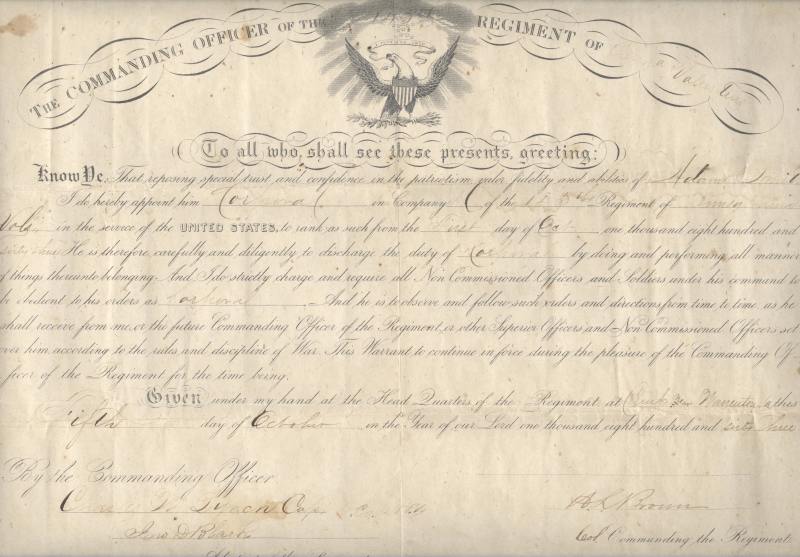 THE COMMANDING OFFICER OF THE REGIMENT OF
To all who shall see these presents, greeting:
Know Ye, That reposing special trust and confidence in the patriotism, valor, fidelity and abilities of Adam
I do hereby appoint him Corporal in Company C of the Regiment of
Vols in the service of the UNITED STATES, to rank as such from the First day of one thousand eight hundred and
sixty three He is therefore carefully and diligently to discharge the duty of Corporal by doing and performing all manner
of things thereunto belonging. And I do strictly charge and require all Non Commissioned Officers and Soldiers under his command to
be obedient to his orders as Corporal And he is to observe and follow such orders and directions from time to time, as he
shall receive from me, or the future Commanding Officer of the Regiment, or other Superior Officers and Non Commissioned Officers set
over him, according to the rules and discipline of War. This Warrant to continue in force during the pleasure of the Commanding Of-
ficer of the Regiment for the time being.
Given under my hand at the Head Quarters of the Regiment at Camp near Warrenton this
Fifth day of October in the Year of our Lord one thousand eight hundred and sixty three
By the Commanding Officer
A L Brown
Col Commanding the Regiment.